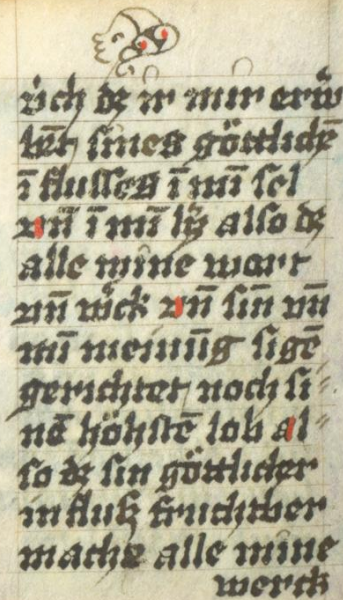 v̈ch dz ir mir erw̋
bēt sines göttlichē
ī flusses ī mī sel
vn̄ ī mī lÿ also dz
alle mine wort
vn̄ w̋ck vn̄ sin vn̄
mī meinūg sigē
gerichtet noch si⸗
nē höhstē lob al⸗
so dz sin göttlicher
influß fruchtber
mache alle mine
werck